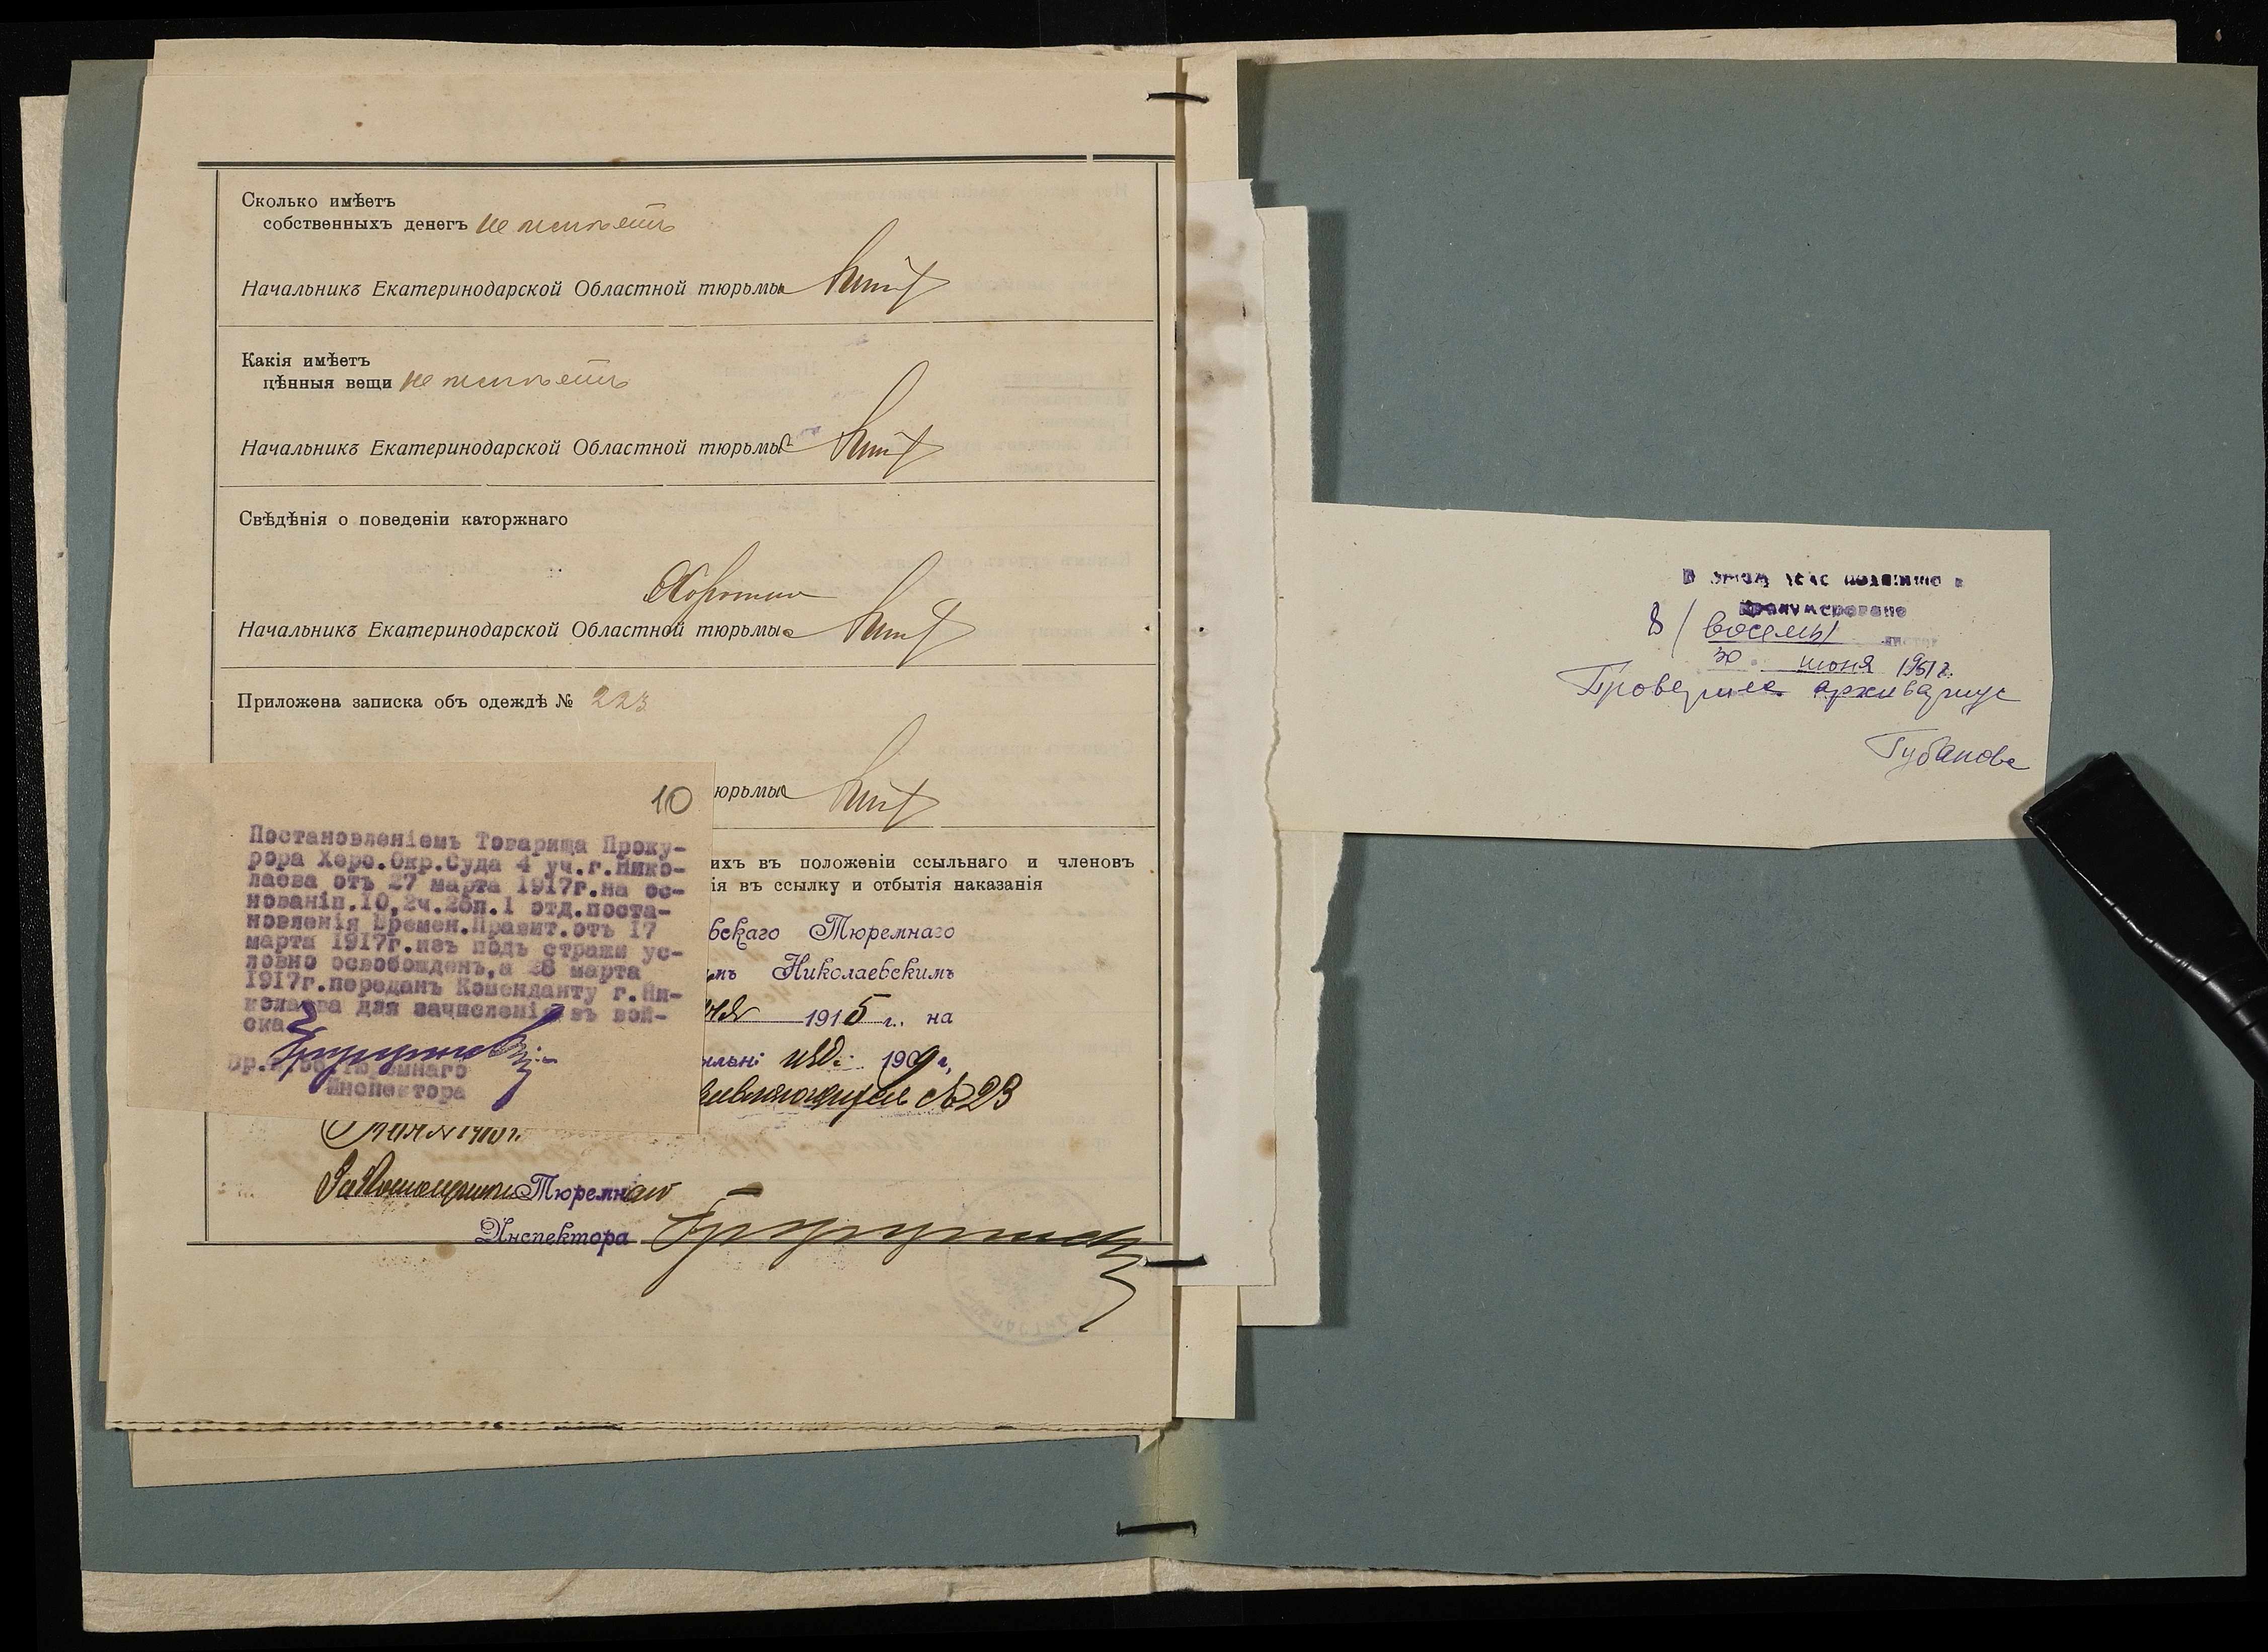 Сколько имѣетъ
собственныхъ денегъ не имѣетъ
Начальникъ Екатеринодарской Областной тюрьмы
Какія имѣетъ
цѣнныя вещи не имѣетъ
Начальникъ Екатеринодарской Областной тюрьмы
Свѣдѣнія о поведеніи каторжнаго
Начальникъ Екатеринодарской Областной тюрьмы
Приложена записка объ одеждѣ № 223
юрьмы
10
Постановленіемъ Товарища Проку-
рора Херс.Окр.Суда 4 уч.г.Нико-
лаева отъ 27 марта 1917г.на ос-
нованіп.10,2ч.2бп.1 отд.поста-
новленія Времен.Правит.отъ 17
марта 1917г.изъ подъ стражи ус-
ловно освобожденъ,а 28 марта
1917г.переданъ Коменданту г.Ни-
колаева для зачисленія въ вой-
ска
Инспектора
ихъ въ положеніи ссыльнаго и членовъ
ія въ ссылку и отбытія наказанія
вскаго Тюремнаго
мъ Николаевскимъ
1915 г.. на
1909 г,
№ 23
Тюремнаго
Инспектора
В этом деле подшито и
пронумеровано
8/ восемь/ листов
30 июня 1951 г.
Проверил архивариус
Губанова